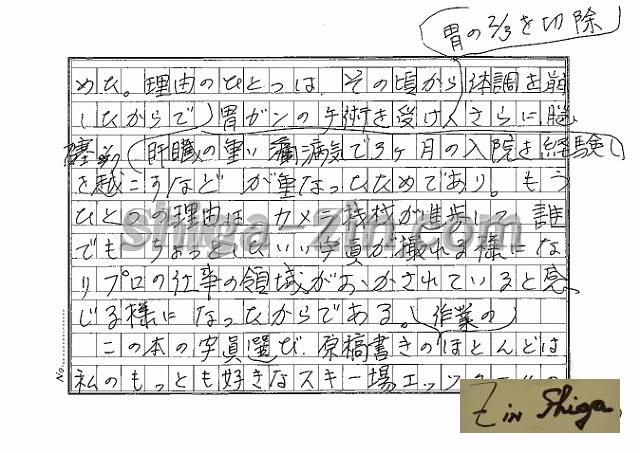 胃の2/3を切除
めた。理由のひとつは、その頃から体調を崩
したからで胃ガンの手術を受け、さらに脳
塞 肝臓の重い病気で3ヶ月の入院を経験し
を越こすなどが重なったためであり。もう
ひとつの理由は、カメラ機材が進歩して誰
でもちょっといい写真が撮れる様にな
りプロの仕事の領域がおかされていると感
じる様になったからである。作業の
この本の写真選び、原稿書きのほとんどは
私のもっとも好きなスキー場エッ
No.
shiga-zin.com
Z in Shiga